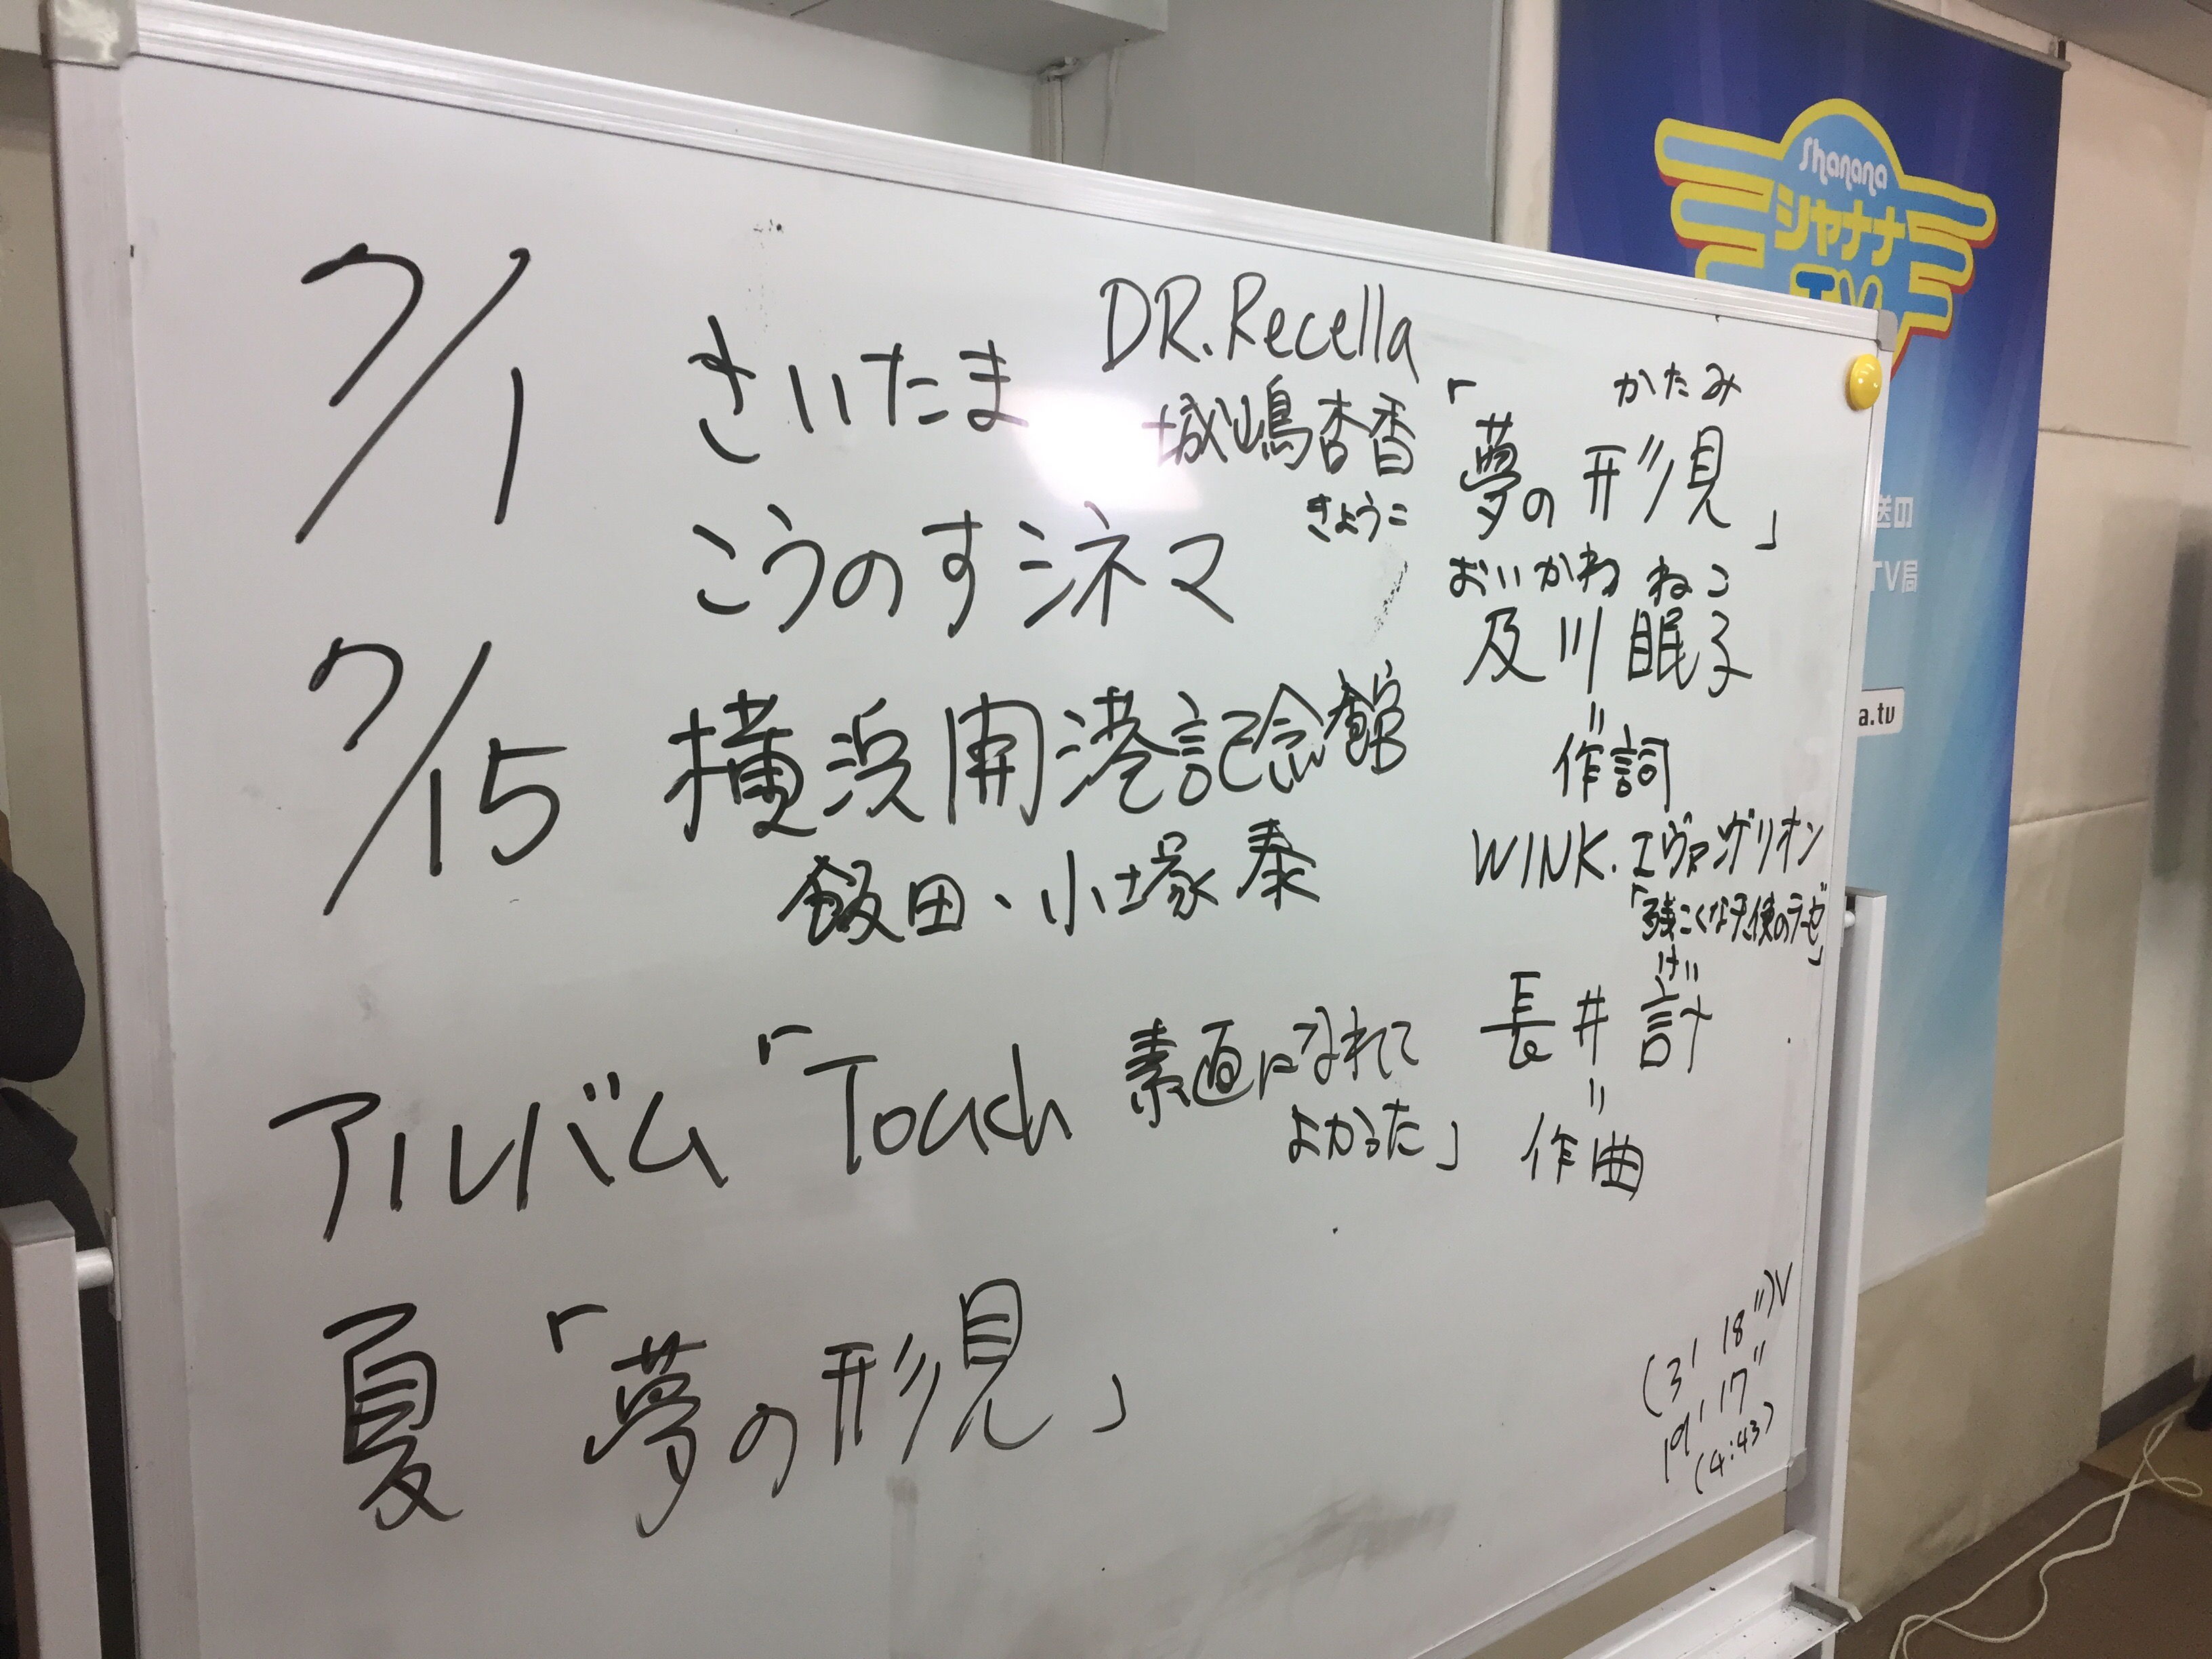 7/1 さいたま
こうのすシネマ
7/15 横浜開港記念館
飯田・小塚 泰
アルバム「Touch 素直になれて
よかった」
夏「夢の形見」
DR.Recella
城嶋杏香
きょうこ
かたみ
「夢の形見」
おいかわ ねこ
及川 眠子
=
作詞
WINK.エヴァンゲリオン
「残こくな天使のテーゼ」
けい
長井 計
=
作曲
(3' 18")V
19' 17"
(4:43)
Shanana
シャナナ
TV
送の
TV局
a.tv